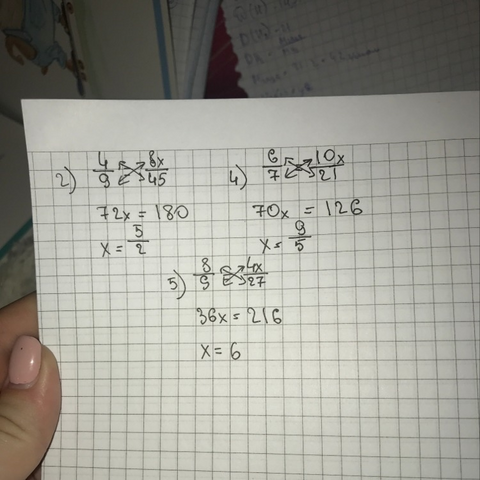 2) 4/9 8x/45
72x = 180
x = 5/2
4) 6/7 10x/21
70x = 126
x = 9/5
5) 8/9 4x/27
36x = 216
x = 6